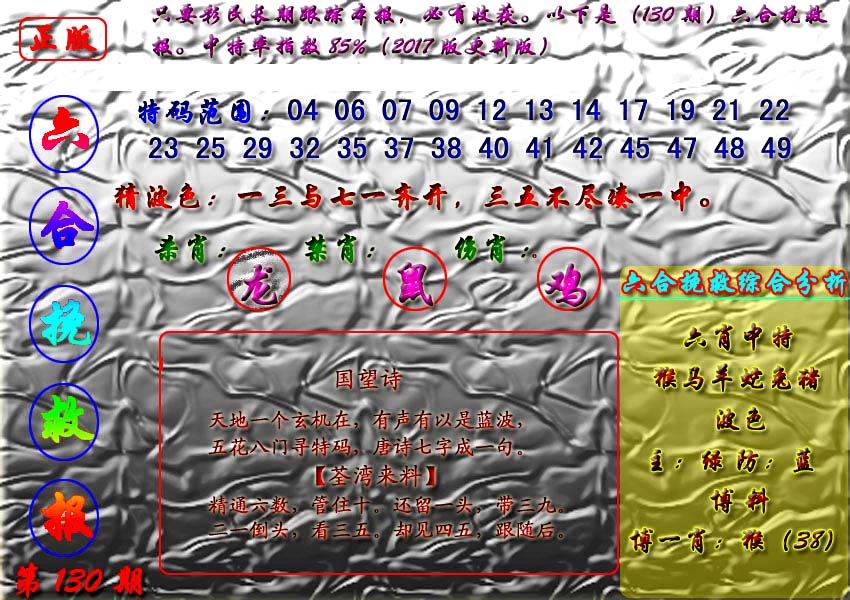 正版
只要彩民长期跟踪本报，必有收获。以下是（130期）六合挽救
报。中特率指数85%（2017版更新版）
六合挽救报
第130期
特码范围：04 06 07 09 12 13 14 17 19 21 22
23 25 29 32 35 37 38 40 41 42 45 47 48 49
猜波色：一三与七一齐开，三五不尽凑一中。
杀肖：龙 禁肖：鼠 伤肖：鸡
国望诗
天地一个玄机在，有声有以是蓝波，
五花八门寻特码，唐诗七字成一句。
【荃湾来料】
精通六数，管住十。还留一头，带三九。
二一倒头，看三五。却见四五，跟随后。
六合挽救综合分析
六肖中特
猴马羊蛇兔猪
波色
主：绿防：蓝
博料
博一肖：猴（38）